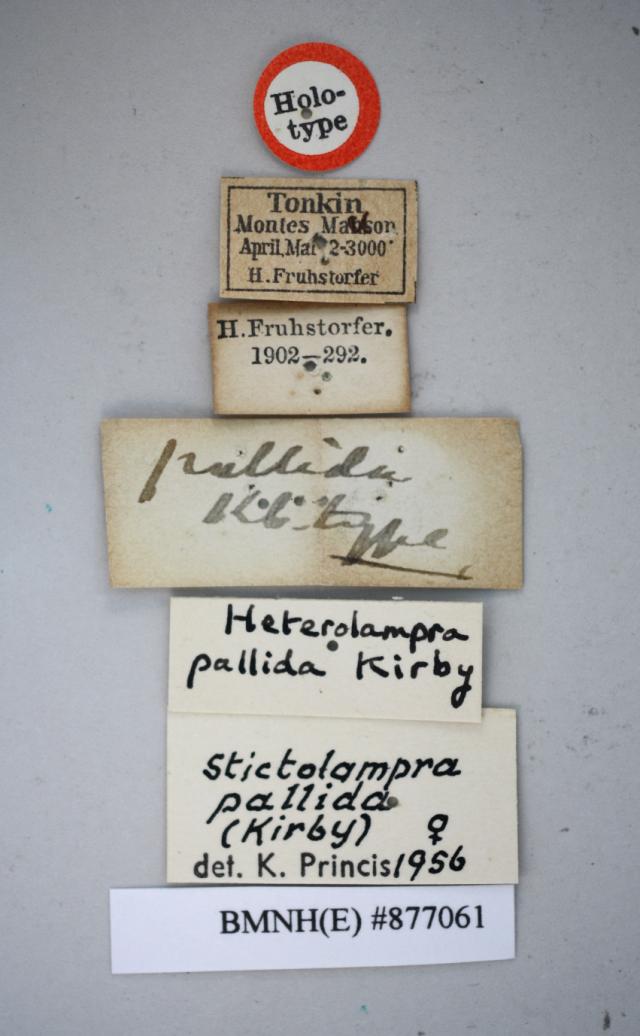 Holo-
type
Tonkin
Montes Mauson
April, Mai 2-3000'
H. Fruhstorfer
H. Fruhstorfer.
1902–292.
pallida
Kb. type
Heterolampra
pallida Kirby
Stictolampra
pallida
(Kirby) ♀
det. K. Princis 1956
BMNH(E) #877061